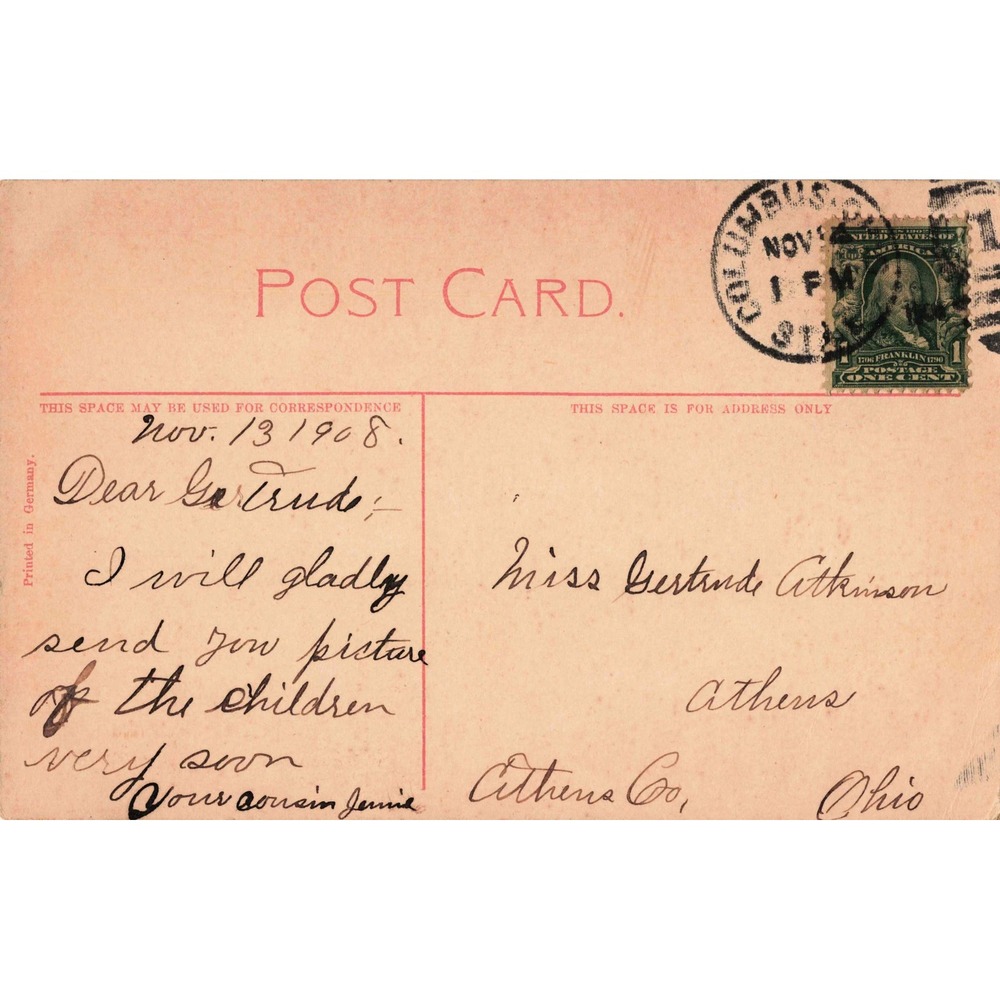 COLUMBUS, O.
NOV
1 PM
STA.
UNITED STATES OF
AMERICA
1706 FRANKLIN 1790
1 POSTAGE 1
ONE CENT
1
POST CARD.
THIS SPACE MAY BE USED FOR CORRESPONDENCE
THIS SPACE IS FOR ADDRESS ONLY
Printed in Germany.
Nov. 13 1908.
Dear Gertrude;-
I will gladly
send you picture
of the children
very soon
Your cousin Jennie
Miss Gertrude Atkinson
Athens
Athens Co,
Ohio